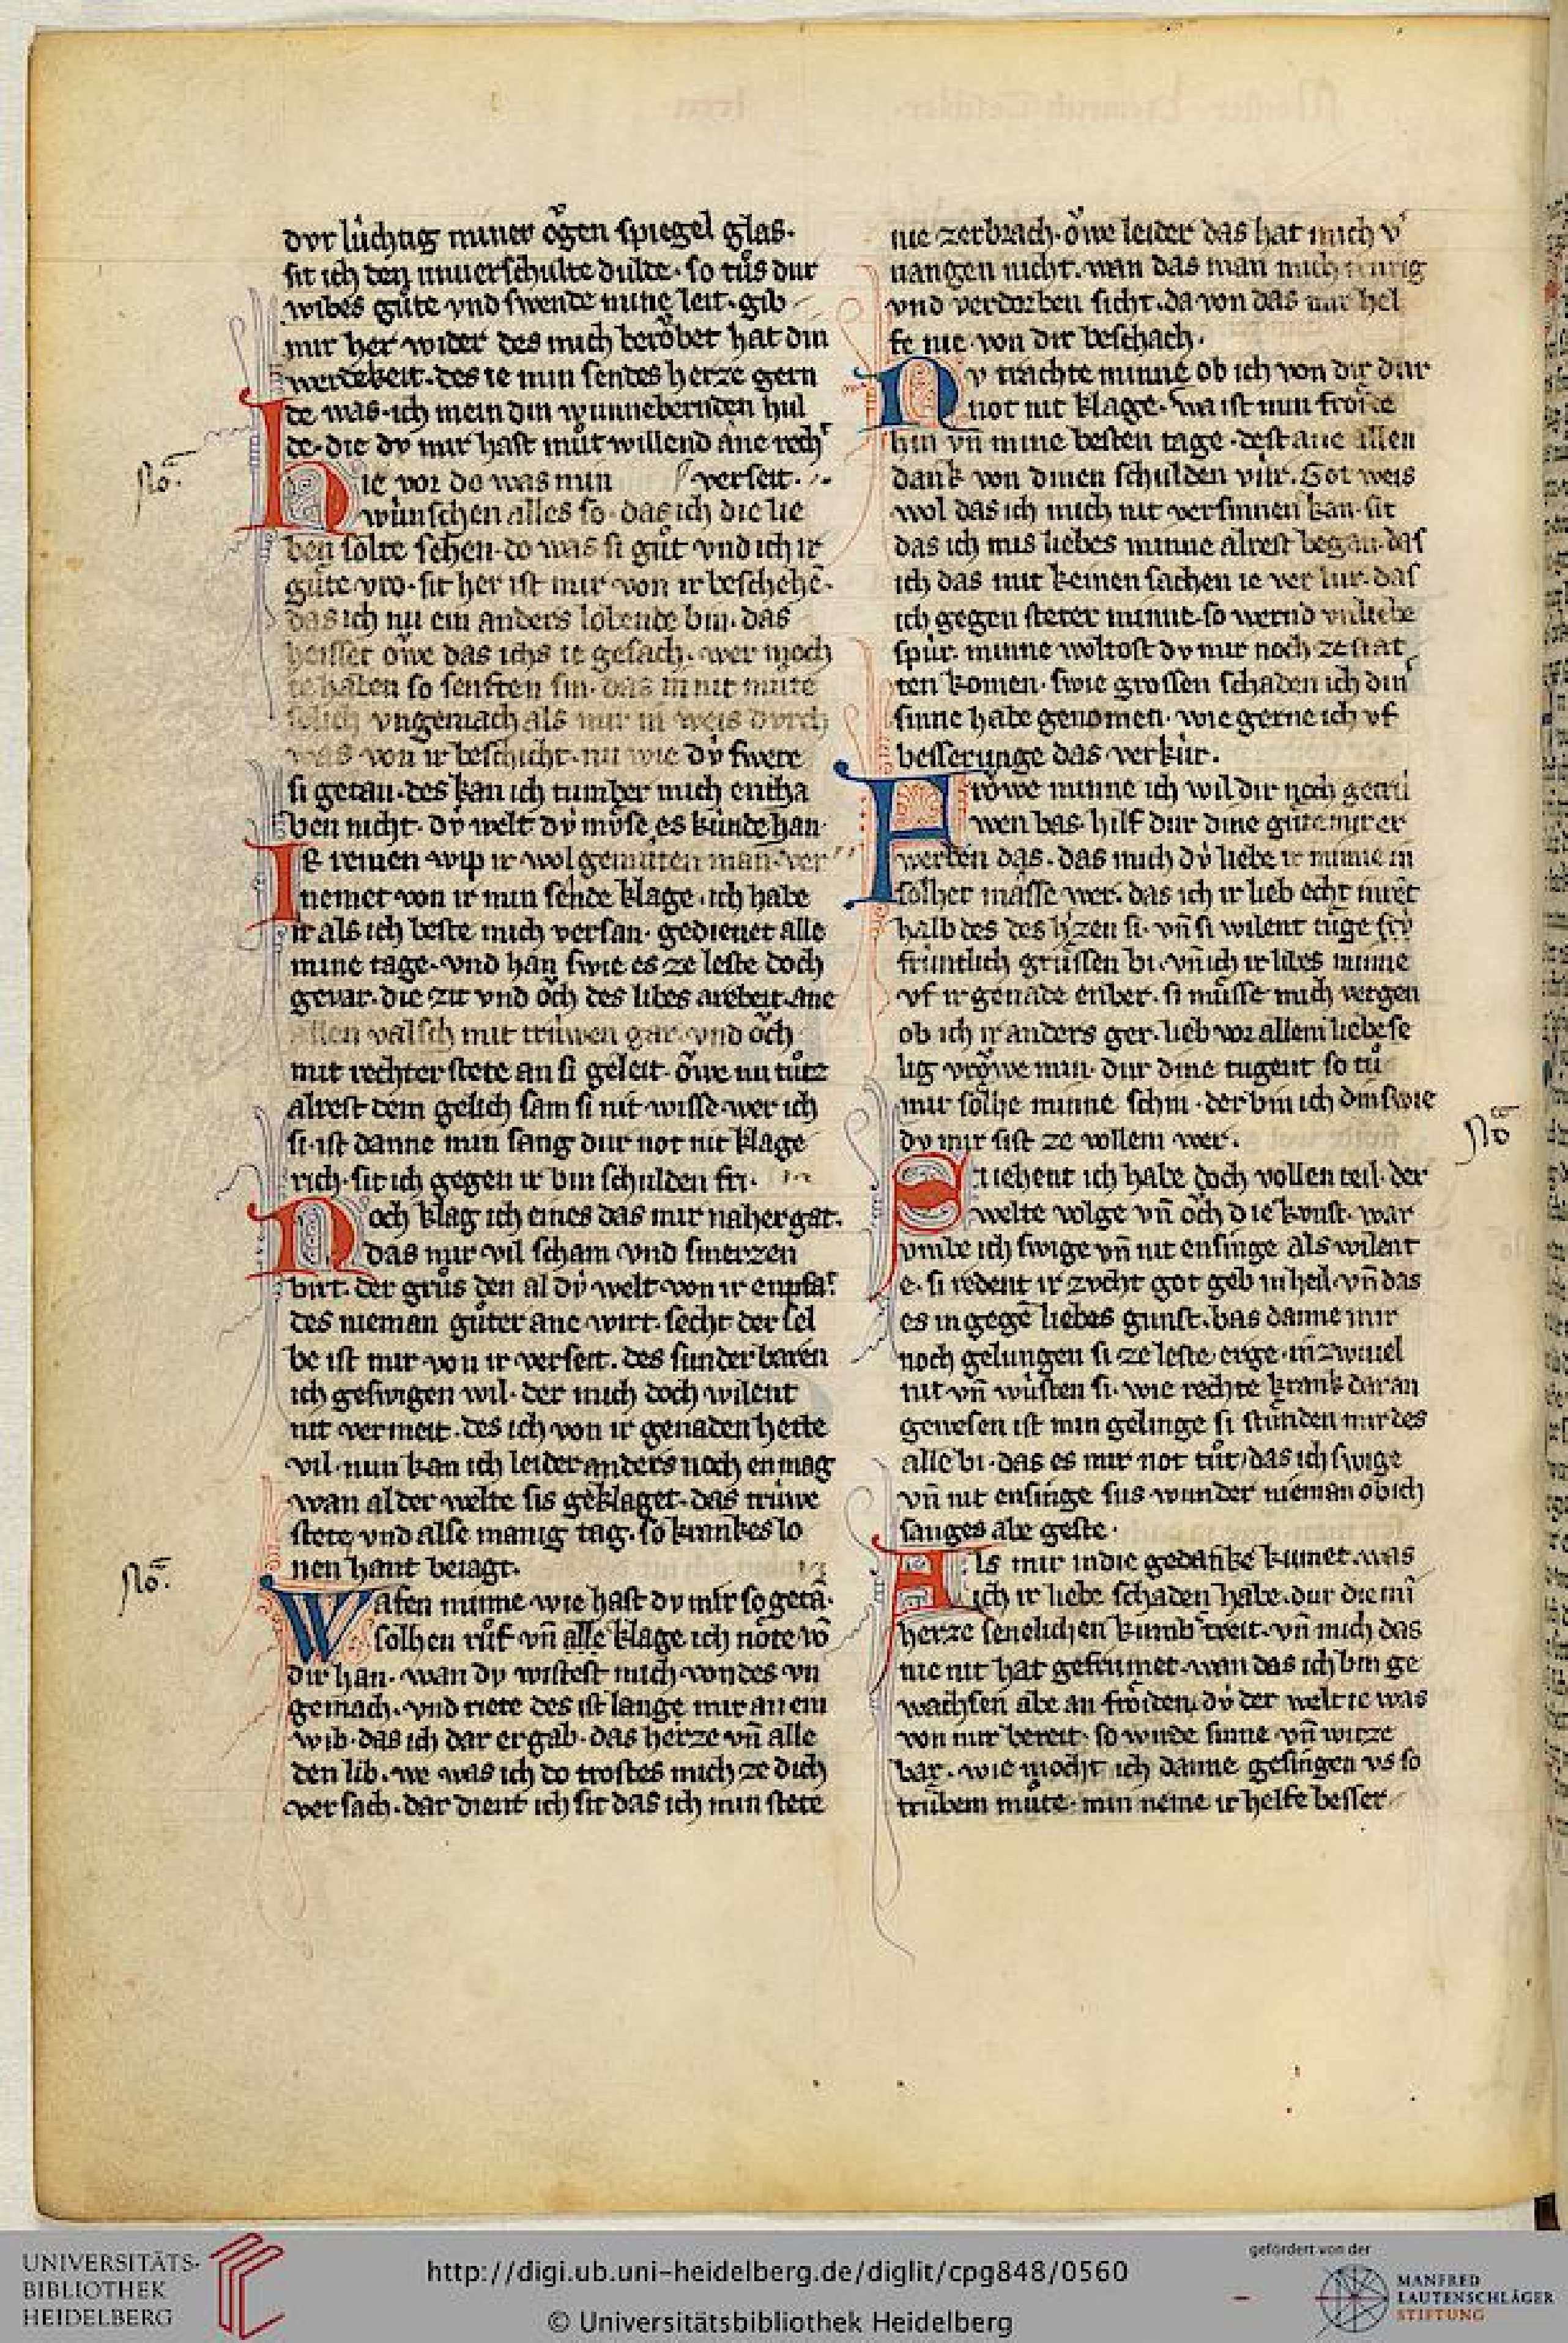 dvr lúchtig miner ogen spiegel glas.
sit ich den unverschulte dulde. so tůs dur
wibes gůte vnd swende mine leit. gib
mir her wider des mich berobet hat din
werdekeit. des ie min sendes herze gern
de was. ich mein din wunnebernden hul
de. die dv mir hast můtwillend ane recht
hie vor do was min verseit.
wúnschen alles so. das ich die lie
ben solte sehen. do was si gůt vnd ich ir
gůte vro. sit her ist mir von ir beschehē.
das ich nu ein anders lobende bin. das
heisset owe das ichs ie gesach. wer moch
te haben so senften sin. das in nit můte
solich vngemach als mir in weis dvrch
was von ir beschicht. nu wie dv́ swere
si getan. des kan ich tumber mich entha
ben nicht. dv́ welt dv́ mv̊se es kúnde han.
Ir reinen wip ir wolgemůten man. ver
nemet von ir min sende klage. ich habe
ir als ich beste mich versan. gedienet alle
mine tage. vnd han swie es ze leste doch
gevar. die zit vnd och des libes arebeit. ane
allen valsch mit trúwen gar. vnd och
mit rechter stete an si geleit. owe nu tůtz
alrest dem gelich sam si nit wisse wer ich
si. ist danne min sang dur not nit klage
rich. sit ich gegen ir bin schulden fri.
Noch klag ich eines das mir naher gat.
das mir vil scham vnd smerzen
birt. der grůs den al dv́ welt von ir enpfat.
des nieman gůter ane wirt. secht der sel
be ist mir von ir verseit. des sunderbaren
ich geswigen wil. der mich doch wilent
nit vermeit. des ich von ir genaden hette
vil. nun kan ich leider anders noch en mag
wan al der welte sis geklaget. das trúwe
stete vnd alse manig tag. so krankes lo
nen hant beiagt.
Wafen minne wie hast dv mir so getā.
solhen růf vn̄ alle klage ich note vō
dir han. wan dv wistest mich von des vn
gemach. vnd riete des ist lange mir an ein
wib. das ich dar ergab. das herze vn̄ alle
den lib. we was ich do trostes mich ze dich
versach. dar dient ich sit das ich min stete
nie zerbrach. owe leider das hat mich v
vangen nicht. wan das man mich trurig
vnd verdorben sicht. da von das mir hel
fe nie von dir beschach.
Nv trachte minne ob ich von dir dur
not nit klage. wa ist min froide
hin vn̄ mine besten tage. dest ane allen
dank von dinen schulden vúr. Got weis
wol das ich mich nit versinnen kan. sit
das ich mis liebes minne alrest began. das
ich das mit keinen sachen ie verlur. das
ich gegen steter minne. so wernd vnliebe
spúr. minne woltost dv mir noch ze stat
ten komen. swie grossen schaden ich din
sinne habe genomen. wie gerne ich vf
besserunge das verkúr.
Frowe minne ich wil dir noch getrú
wen bas. hilf dur dine gůte mir er
werben das. das mich dv́ liebe ir minne in
solher masse wer. das ich ir lieb echt inret
halb des des h'zen si. vn̄ si wilent túge frv́
frúntlich grůssen bi. vn̄ ich ir libes minne
vf ir genade enber. si můsse mich vergen
ob ich ir anders ger. lieb vor allem liebe se
lig vrowe min. dur dine tugent so tů
mir solhe minne schin. der bin ich din swie
dv mir sist ze vollem wer.
Si iehent ich habe doch vollen teil. der
welte volge vn̄ och die kvnst. war
vmbe ich swige vn̄ nit ensinge als wilent
e. si redent ir zvcht got geb in heil. vn̄ das
es in gegē liebes gunst. bas danne mir
noch gelungen si ze leste erge. in zwiuel
nit vn̄ wústen si. wie rechte krank daran
gewesen ist min gelinge si stůnden mir des
alle bi. das es mir not tůt. das ich swige
vn̄ nit ensinge sus wunder nieman ob ich
sanges abe geste.
Als mir in die gedanke kumet. was
ich ir liebe schaden habe. dur die mī
herze senelichen kumb' treit. vn̄ mich das
nie nit hat gefrumet. wan das ich bin ge
wachsen abe an froiden. dv́ der welt ie was
von mir bereit. so wirde sinne vn̄ witze
bar. wie mocht ich danne gesingen vs so
trůbem můte. min neme ir helfe besser
No.
No.
No
UNIVERSITÄTS-
BIBLIOTHEK
HEIDELBERG
http://digi.ub.uni-heidelberg.de/diglit/cpg848/0560
© Universitätsbibliothek Heidelberg
gefördert von der
MANFRED
LAUTENSCHLÄGER
STIFTUNG